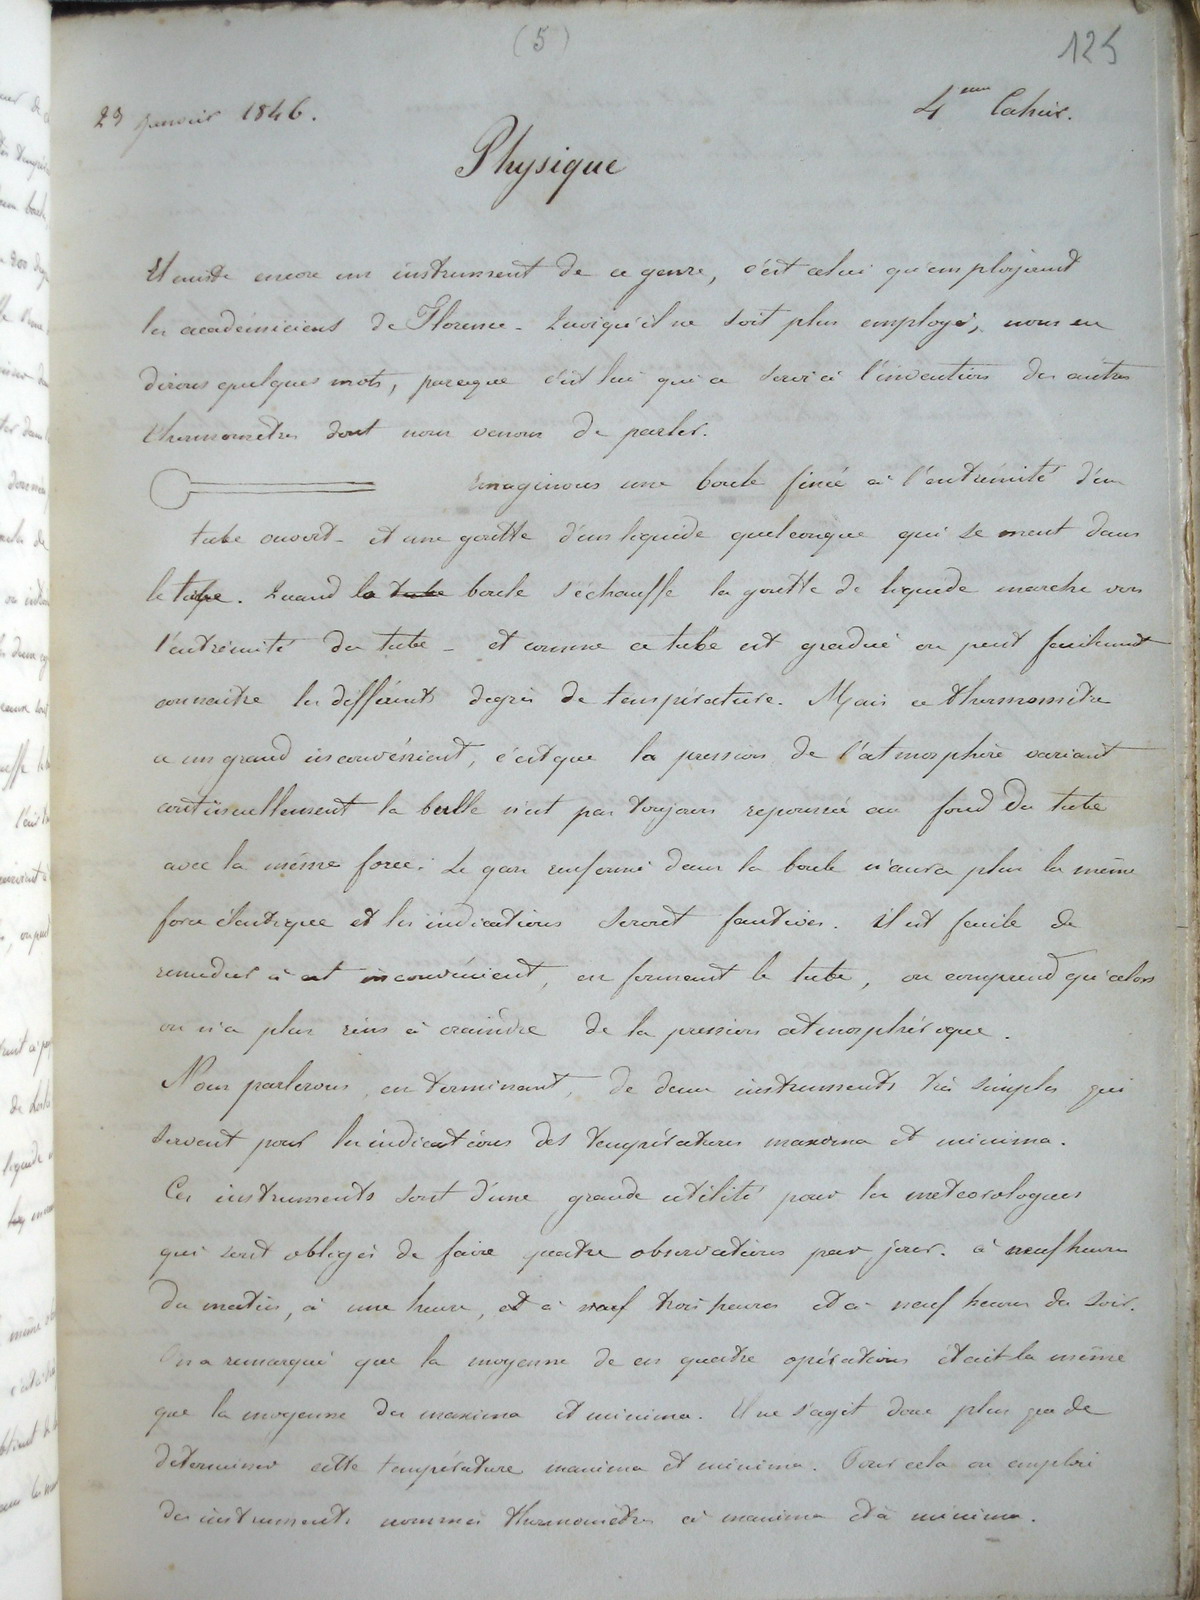 (5)
125
23 Janvier 1846.
4eme Cahier.
Physique
Il existe encore un instrument de ce genre, c'est celui qu'employaient
les académiciens de Florence - Quoiqu'il ne soit plus employé, nous en
dirons quelques mots, parceque c'est lui qui a servi à l'invention des autres
thermomètres dont nous venons de parler.
Imaginons une boule fixée à l'extrémité d'un
tube ouvert - et une goutte d'un liquide quelconque qui se meut dans
le tube. Quand la tube boule s'échauffe la goutte de liquide marche vers
l'extrémité du tube - et comme ce tube est gradué on peut facilement
connaitre les différents degrés de température. Mais ce thermomètre
a un grand inconvénient, c'est que la pression de l'atmosphère variant
continuellement la bulle n'est pas toujours repoussée au fond du tube
avec la même force. Le gaz renfermé dans la boule n'aura plus la même
force élastique et les indications seront fautives. Il est facile de
remedier à cet inconvénient, en fermant le tube, on comprend qu'alors
on n'a plus rien à craindre de la pression atmosphérique.
Nous parlerons, en terminant, de deux instruments très simples qui
servent pour les indications des températures maxima et minima.
Ces instruments sont d'une grande utilité pour les meteorologues
qui sont obligés de faire quatre observations par jour. à neuf heures
du matin, à une heure, et à neuf trois heures et à neuf heures du soir.
On a remarqué que la moyenne de ces quatre opérations était la même
que la moyenne des maxima et minima. Il ne s'agit donc plus que de
determiner cette température maxima et minima. Pour cela on emploi
des instruments nommés thermomètres à maxima et à minima.